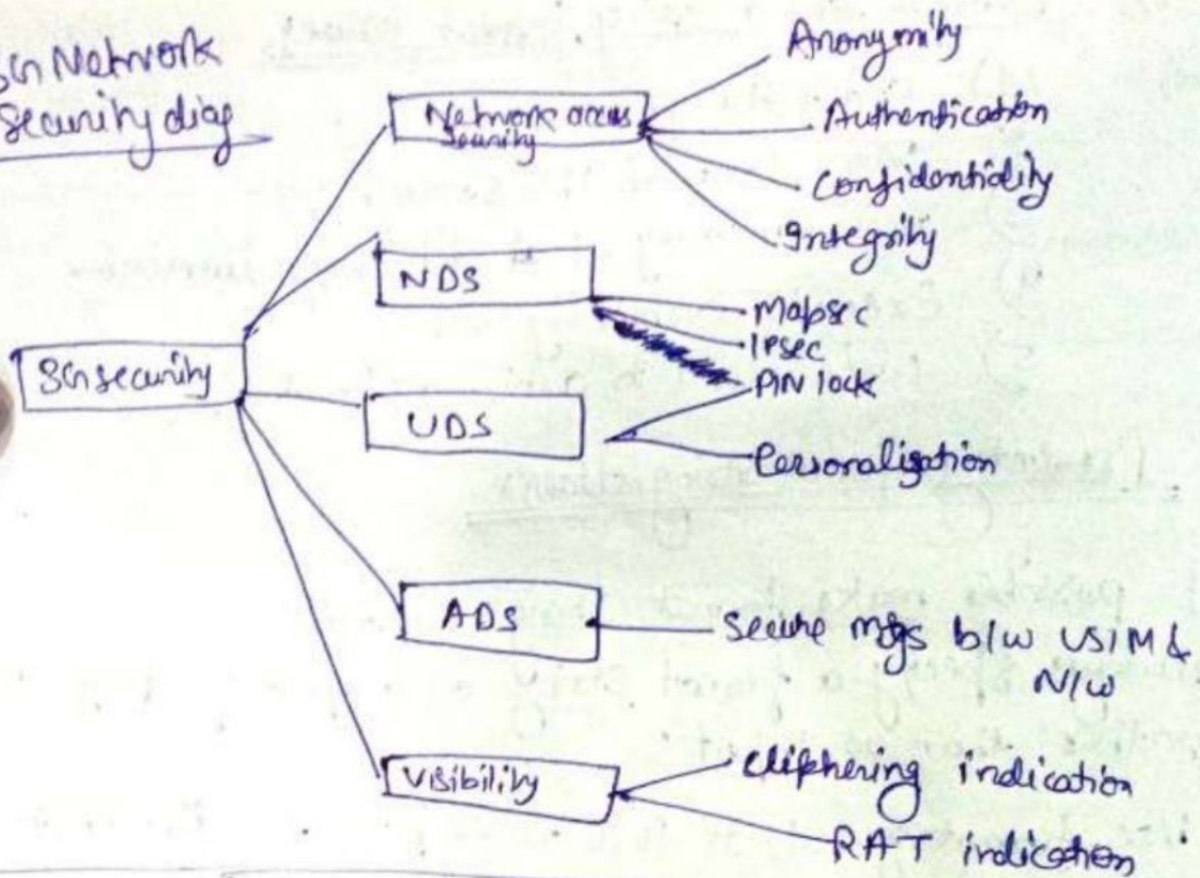 3G Network
Security diag
Network access
Security
Anonymity
Authentication
Confidentiality
Integrity
NDS
Mapsec
IPsec
PIN lock
3G security
UDS
Personalisation
ADS
Secure msgs b/w USIM &
N/w
Visibility
Cliphering indication
RAT indication